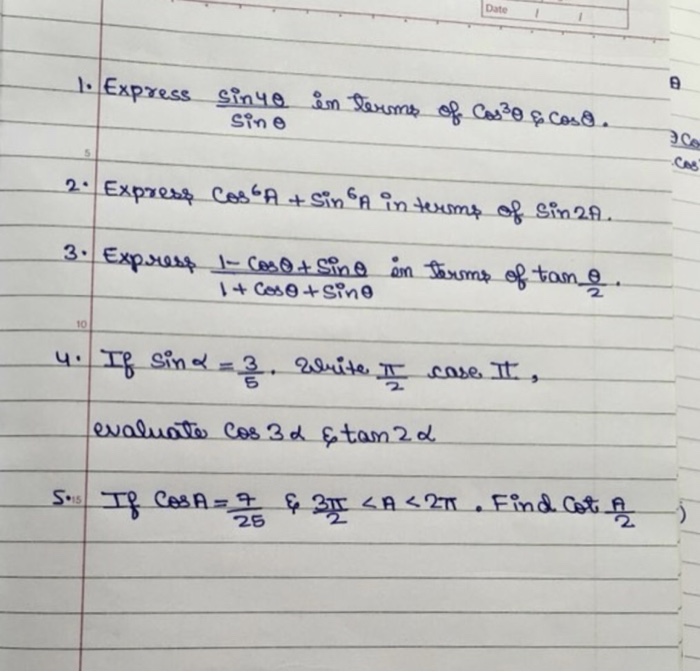 Date / /
1. Express sin4θ/sinθ in terms of cos³θ & cosθ.
5
2. Express cos⁶A + sin⁶A in terms of sin2A.
3. Express 1-cosθ+sinθ/1+cosθ+sinθ in terms of tan θ/2.
10
4. If sinα = 3/5. Write π/2 case II,
evaluate cos3α & tan2α
5. 15 If cosA = 7/25 & 3π/2 <A<2π. Find cot A/2
θ
cos
)